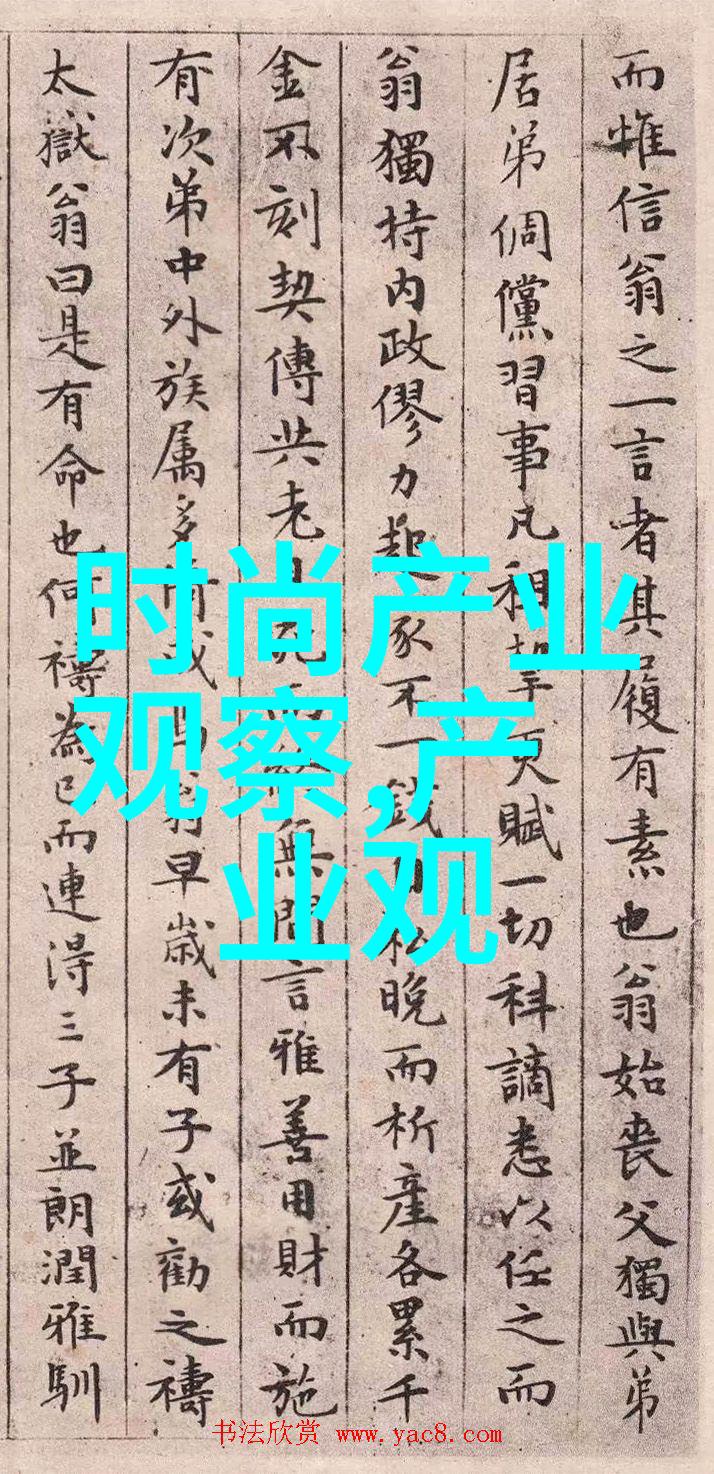 而惟信翁之一言者其履有素也翁始丧父獨與弟
居弟倜儻習事凡租挈更賦一切科謫悉以任之而
翁獨持内政僇力起家不一錢自私晚而析產各累千
金不刻契傳共老無間言雅善用財而施
有次第中外族属多翁早歲未有子或勸之禱
太嶽翁曰是有命也何禱為已而連得三子並朗潤雅馴
时尚产业
观察,产
业观
书法欣赏 www.yac8.com